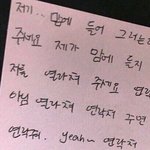 저기... 맘에 들어 그러는
주세요 제가 맘에 들지
저를 연락처 주세요 연락
아님 연락처 연락처 주면
연락처. yeah~ 연락처